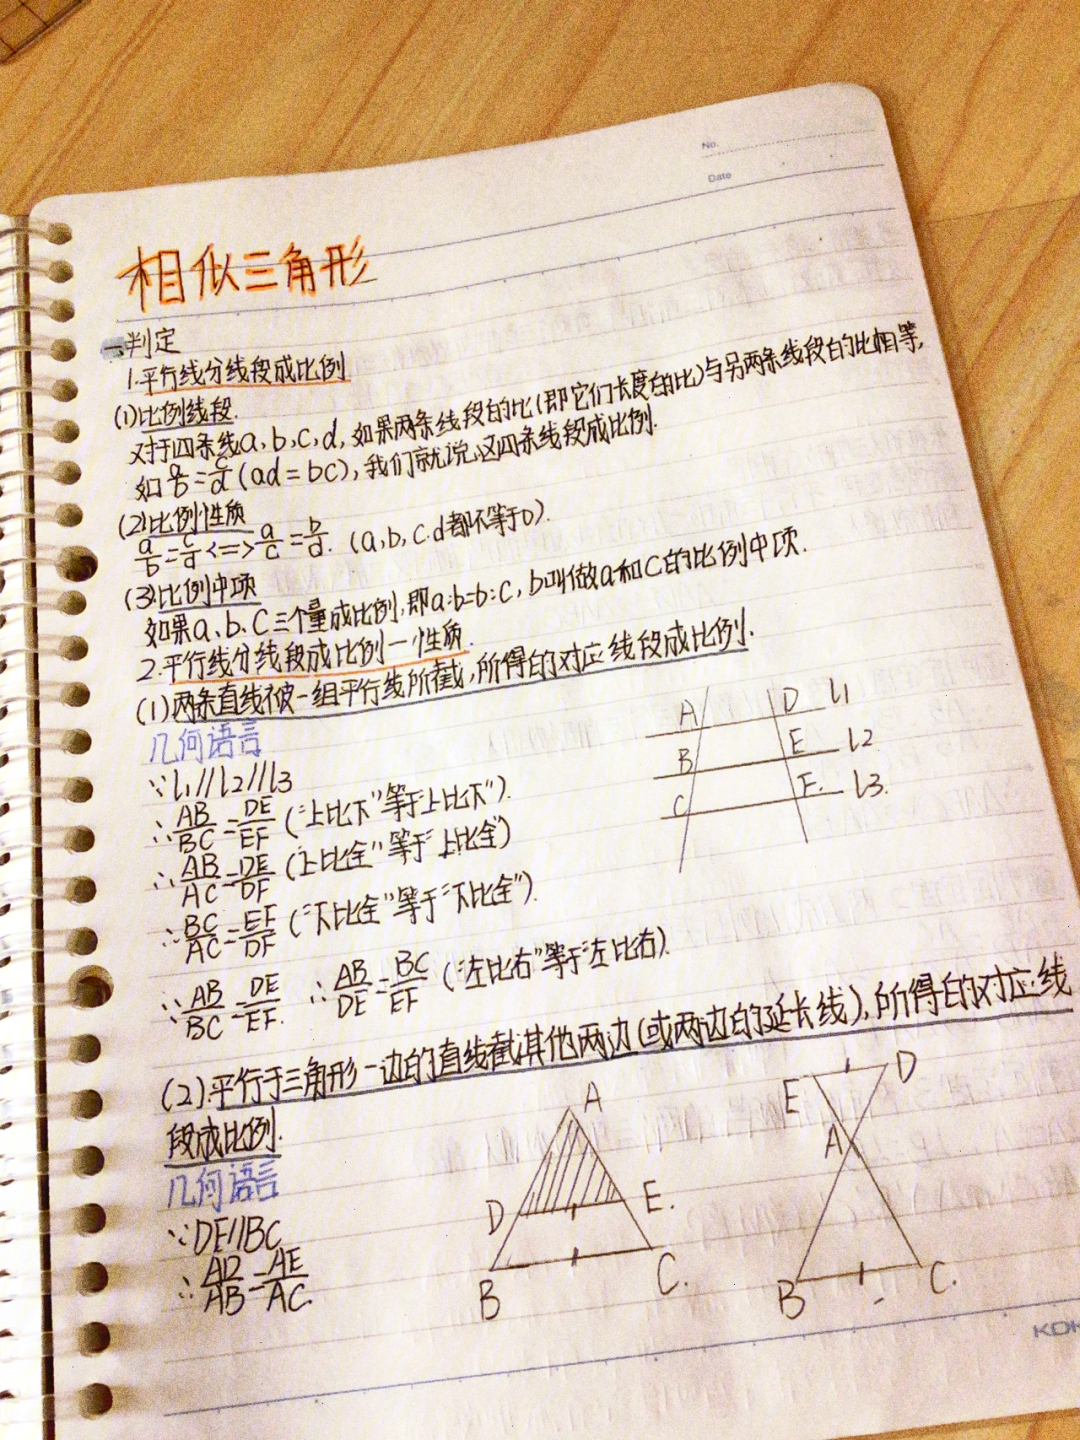 No.
Date
相似三角形
一判定
1.平行线分线段成比例
(1)比例线段.
对于四条线a,b,c,d,如果两条线段的比(即它们长度的比)与另两条线段的比相等,
如a/b=c/d(ad=bc),我们就说这四条线段成比例.
(2)比例性质
a/b=c/d<=>a/c=b/d.(a,b,c.d都不等于0).
(3)比例中项
如果a、b、c三个量成比例,即a:b=b:c,b叫做a和c的比例中项.
2.平行线分线段成比例一性质.
(1)两条直线被一组平行线所截,所得的对应线段成比例.
几何语言
∵l1//l2//l3
∴AB/BC=DE/EF("上比下"等于"上比下").
∴AB/AC=DE/DF("上比全"等于"上比全")
∴BC/AC=EF/DF("下比全"等于"下比全").
A D l1
B E l2
C F. l3.
∵AB/BC=DE/EF. ∴AB/DE=BC/EF("左比右"等于"左比右).
(2).平行于三角形一边的直线截其他两边(或两边的延长线),所得的对应线
段成比例.
几何语言
∵DE//BC
∴AD/AB=AE/AC.
A
D E.
B C.
E D
A
B C.
KOK